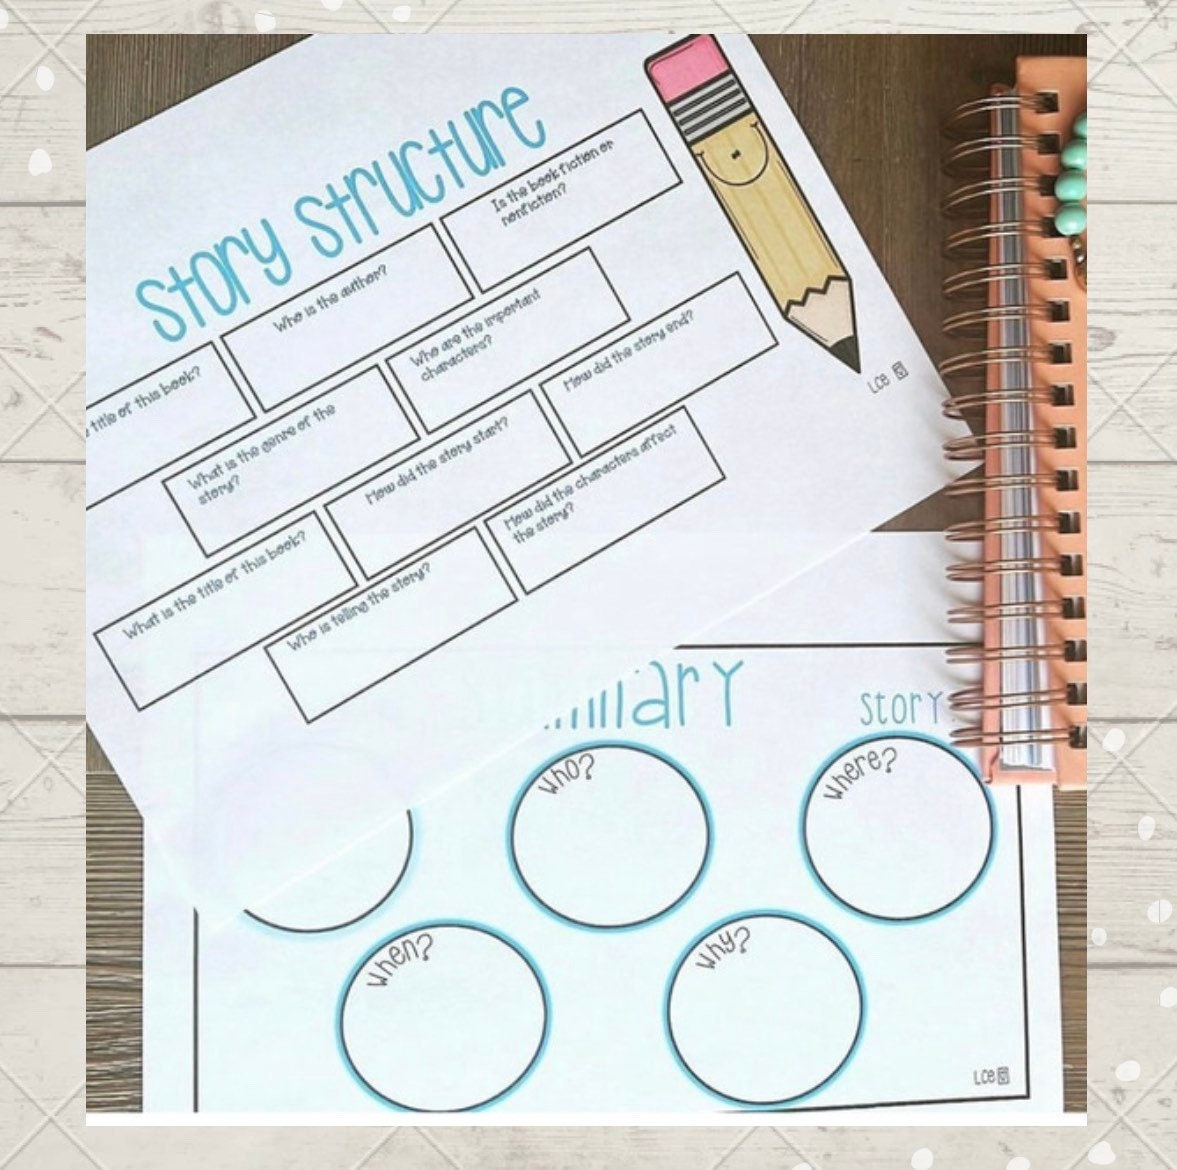 story structure
title of this book?
Who is the author?
Is the book fiction or
nonfiction?
What is the genre of the
story?
Who are the important
characters?
What is the title of this book?
How did the story start?
How did the story end?
Who is telling the story?
How did the characters affect
the story?
LCE
ary
story
who?
where?
when?
why?
LCE